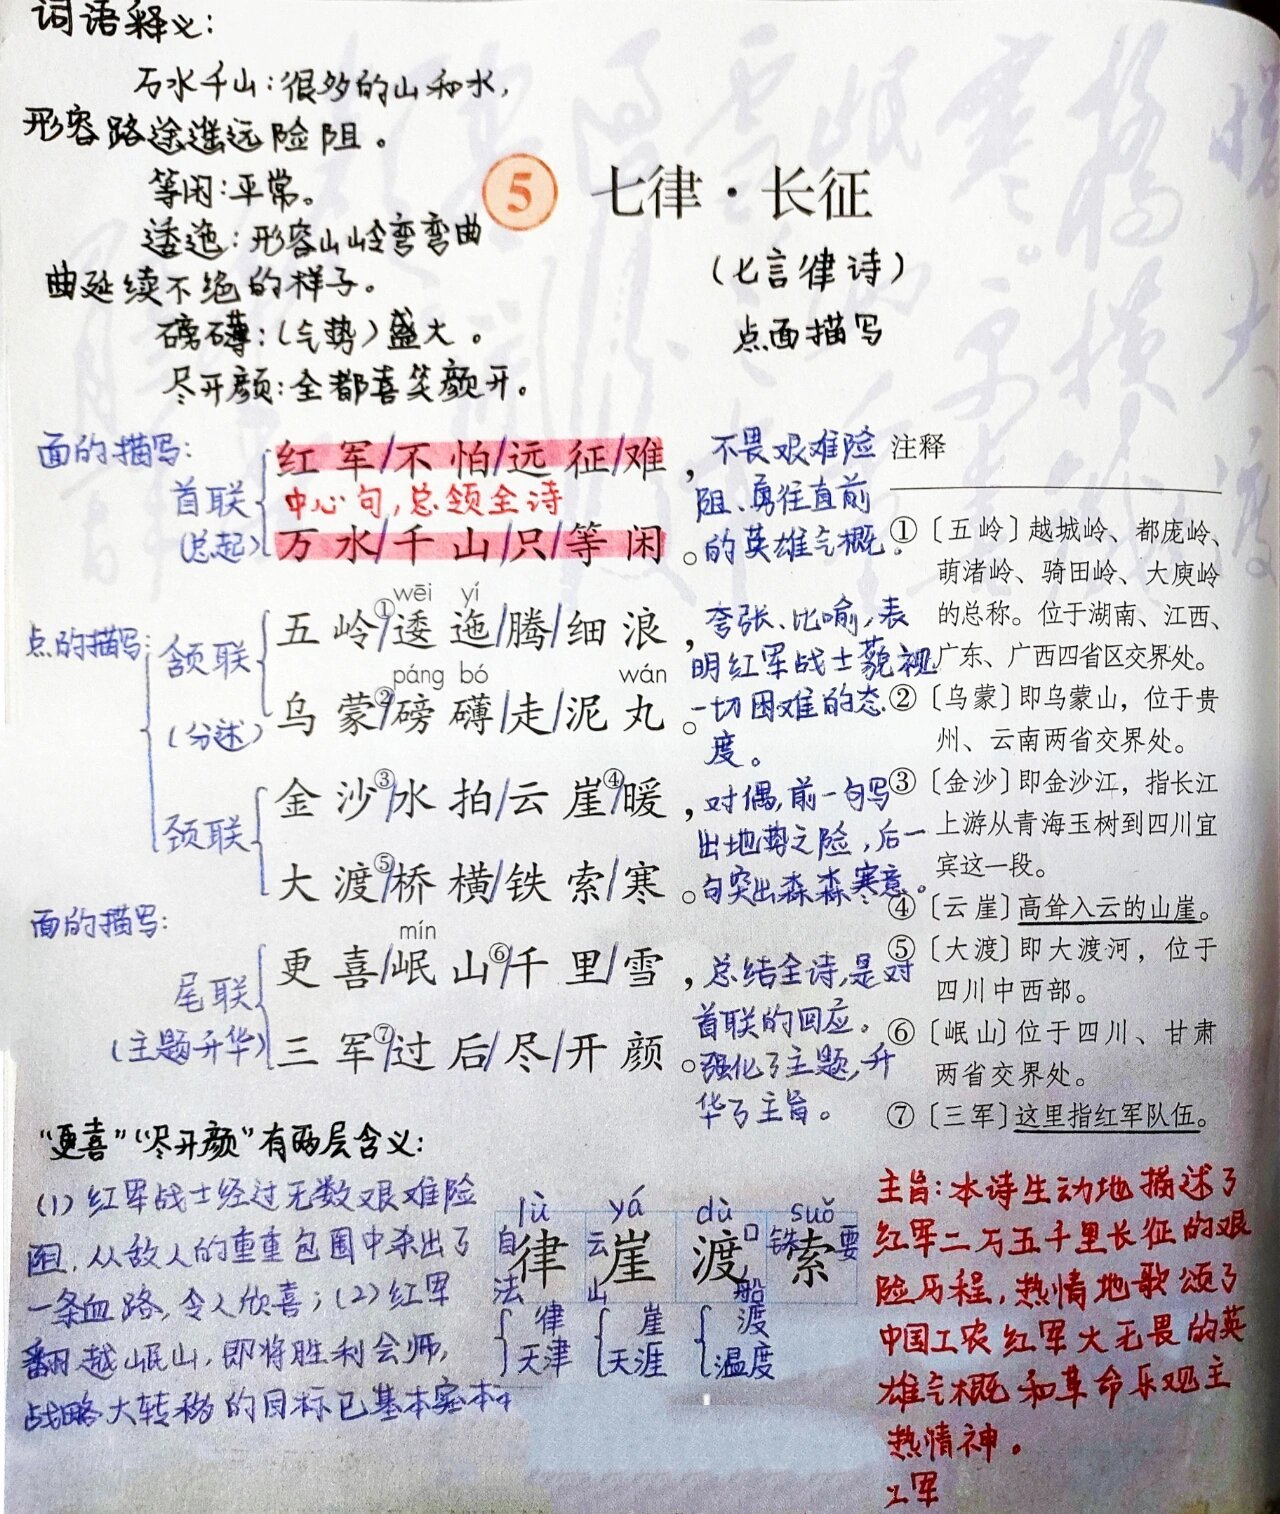 词语释义：
万水千山：很多的山和水，
形容路途遥远险阻。
等闲：平常。
逶迤：形容山岭弯弯曲
曲延续不绝的样子。
磅礴：（气势）盛大。
尽开颜：全都喜笑颜开。
5 七律·长征
（七言律诗）
点面描写
面的描写：
首联
（总起）
红军/不怕/远征/难，
中心句，总领全诗
万水/千山/只/等闲。
不畏艰难险
阻、勇往直前
的英雄气概。
点的描写：
颔联
（分述）
wēi yí
五岭①/逶迤/腾/细浪，
páng bó wán
乌蒙②/磅礴/走/泥丸。
夸张、比喻，表
明红军战士藐视
一切困难的态
度。
颈联
金沙③/水拍/云崖④/暖，
大渡⑤/桥横/铁索/寒。
对偶，前一句写
出地势之险，后一
句突出森森寒意。
面的描写：
尾联
（主题升华）
mín
更喜/岷山⑥/千里/雪，
三军⑦/过后/尽/开颜。
总结全诗，是对
首联的回应。
强化了主题，升
华了主旨。
注释
①〔五岭〕越城岭、都庞岭、
萌渚岭、骑田岭、大庾岭
的总称。位于湖南、江西、
广东、广西四省区交界处。
②〔乌蒙〕即乌蒙山，位于贵
州、云南两省交界处。
③〔金沙〕即金沙江，指长江
上游从青海玉树到四川宜
宾这一段。
④〔云崖〕高耸入云的山崖。
⑤〔大渡〕即大渡河，位于
四川中西部。
⑥〔岷山〕位于四川、甘肃
两省交界处。
⑦〔三军〕这里指红军队伍。
“更喜”“尽开颜”有两层含义：
（1）红军战士经过无数艰难险
阻，从敌人的重重包围中杀出了
一条血路，令人欣喜；（2）红军
翻越岷山，即将胜利会师，
战略大转移的目标已基本实本
lǜ yá dù suǒ
自律 云崖 渡口 铁索 要
法 山 船
律 崖 渡
天津 天涯 温度
主旨：本诗生动地描述了
红军二万五千里长征的艰
险历程，热情地歌颂了
中国工农红军大无畏的英
雄气概和革命乐观主
热情神。
军